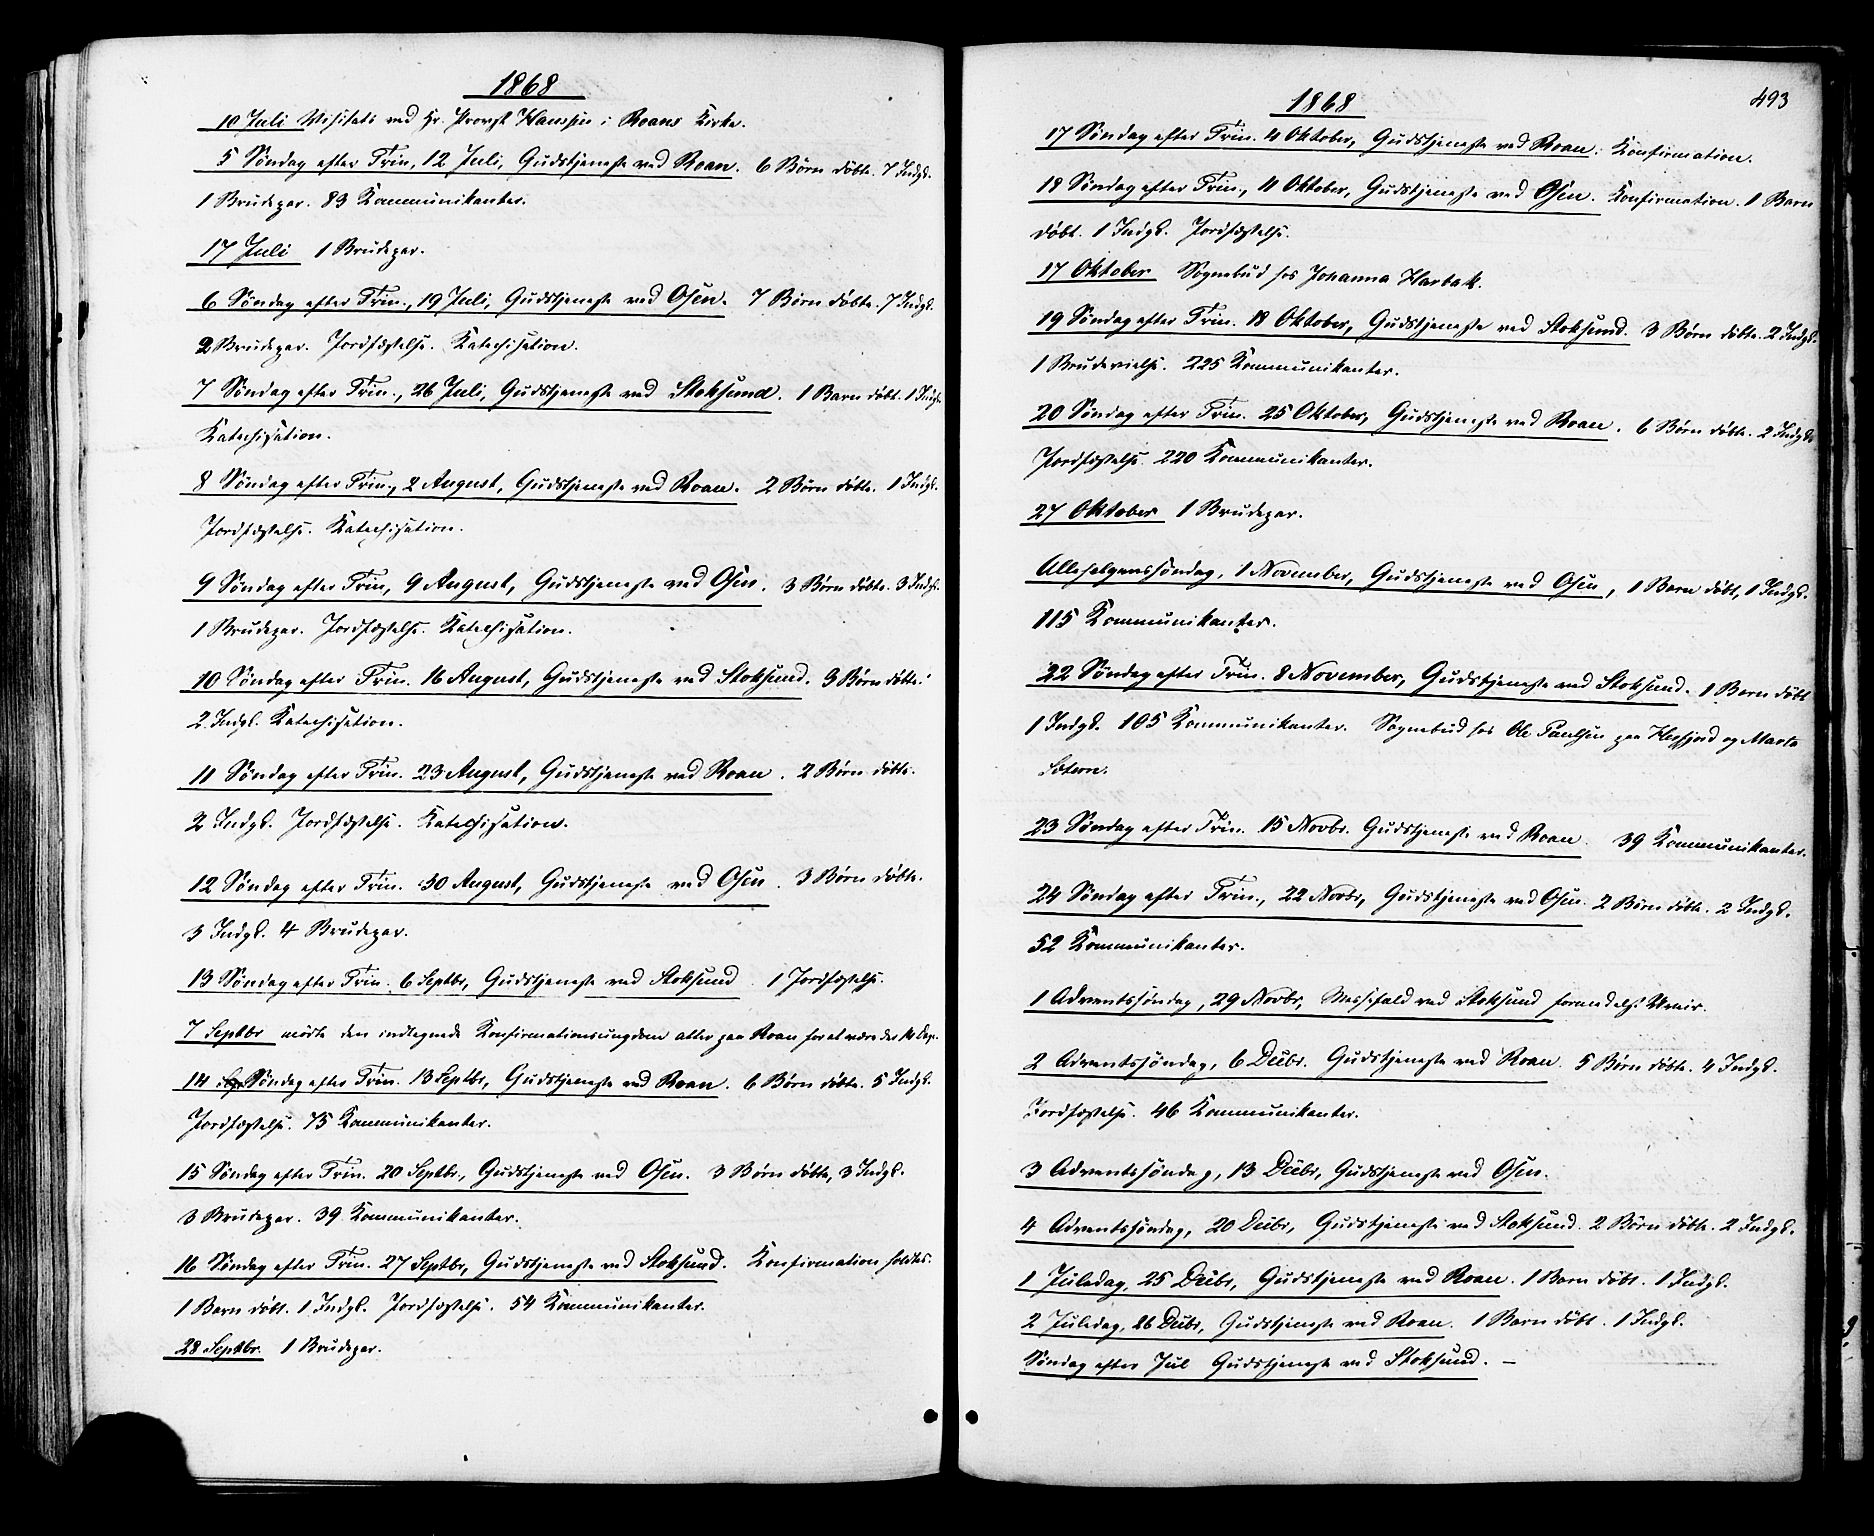 1868
10 Juli Visitats ved Hr. Provst Hanssen i Roans Kirke.
5 Søndag efter Trin, 12 Juli, Gudstjeneste ved Roan. 6 Børn døbte. 7 Indgl.
1 Brudepar. 83 Kommunikanter.
17 Juli 1 Brudepar.
6 Søndag efter Trin., 19 Juli, Gudstjeneste ved Osen. 7 Børn døbte. 7 Indgl.
2 Brudepar. Jordfæstelse. Katechisation.
7 Søndag efter Trin., 26 Juli, Gudstjeneste ved Stoksund. 1 Barn døbt. 1 Indgl.
Katechisation.
8 Søndag efter Trin., 2 August, Gudstjeneste ved Roan. 2 Børn døbte. 1 Indgl.
Jordfæstelse. Katechisation.
9 Søndag efter Trin, 9 August, Gudstjeneste ved Osen. 3 Børn døbte. 3 Indgl.
1 Brudepar. Jordfæstelse. Katechisation.
10 Søndag efter Trin. 16 August, Gudstjeneste ved Stoksund. 3 Børn døbte.
2 Indgl. Katechisation.
11 Søndag efter Trin. 23 August, Gudstjeneste ved Roan. 2 Børn døbte.
2 Indgl. Jordfæstelse. Katechisation.
12 Søndag efter Trin. 30 August, Gudstjeneste ved Osen. 3 Børn døbte.
3 Indgl. 4 Brudepar.
13 Søndag efter Trin. 6 Septbr, Gudstjeneste ved Stoksund 1 Jordfæstelse.
7 Septbr mødte den indtegnede Konfirmationsungdom atter paa Roan for at være der 14 Dage.
14 Søndag efter Trin. 13 Septbr, Gudstjeneste ved Roan. 6 Børn døbte. 5 Indgl.
Jordfæstelse. 75 Kommunikanter.
15 Søndag efter Trin. 20 Septbr., Gudstjeneste ved Osen. 3 Børn døbte, 3 Indgl.
3 Brudepar. 39 Kommunikanter.
16 Søndag efter Trin. 27 Septbr, Gudstjeneste ved Stoksund. Konfirmation holdtes.
1 Barn døbt. 1 Indgl. Jordfæstelse. 54 Kommunikanter.
28 Septbr. 1 Brudepar.
493
1868
17 Søndag efter Trin. 4 Oktober, Gudstjeneste ved Roan. Konfirmation.
18 Søndag efter Trin., 11 Oktober, Gudstjeneste ved Osen. Konfirmation. 1 Barn
døbt. 1 Indgl. Jordfæstelse.
17 Oktober Sognebud hos Johanna Harbak.
19 Søndag efter Trin. 18 Oktober, Gudstjeneste ved Stoksund. 3 Børn døbte. 2 Indgl.
1 Brudevielse. 225 Kommunikanter.
20 Søndag efter Trin. 25 Oktober, Gudstjeneste ved Roan. 6 Børn døbte. 2 Indgl.
Jordfæstelse. 220 Kommunikanter.
27 Oktober 1 Brudepar.
Allehelgenssøndag, 1 November, Gudstjeneste ved Osen, 1 Barn døbt, 1 Indgl.
115 Kommunikanter.
22 Søndag efter Trin. 8 November, Gudstjeneste ved Stoksund. 1 Barn døbt
1 Indgl. 105 Kommunikanter. Sognebud hos Ole Paulsen paa og Marta
23 Søndag efter Trin. 15 Novbr. Gudstjeneste ved Roan. 39 Kommunikanter.
24 Søndag efter Trin., 22 Novbr, Gudstjeneste ved Osen. 2 Børn døbte. 2 Indgl.
52 Kommunikanter.
1 Adventssøndag, 29 Novbr, Messefald ved Stoksund formedelst Uveir.
2 Adventssøndag, 6 Decbr. Gudstjeneste ved Roan. 5 Børn døbte. 4 Indgl.
Jordfæstelse. 46 Kommunikanter.
3 Adventssøndag, 13 Decbr, Gudstjeneste ved Osen.
4 Adventssøndag, 20 Decbr, Gudstjeneste ved Stoksund. 2 Børn døbte. 2 Indgl.
1 Juledag, 25 Decbr, Gudstjeneste ved Roan. 1 Barn døbt. 1 Indgl.
2 Juledag, 26 Decbr, Gudstjeneste ved Roan. 1 Barn døbt. 1 Indgl.
Søndag efter Jul Gudstjeneste ved Stoksund. —